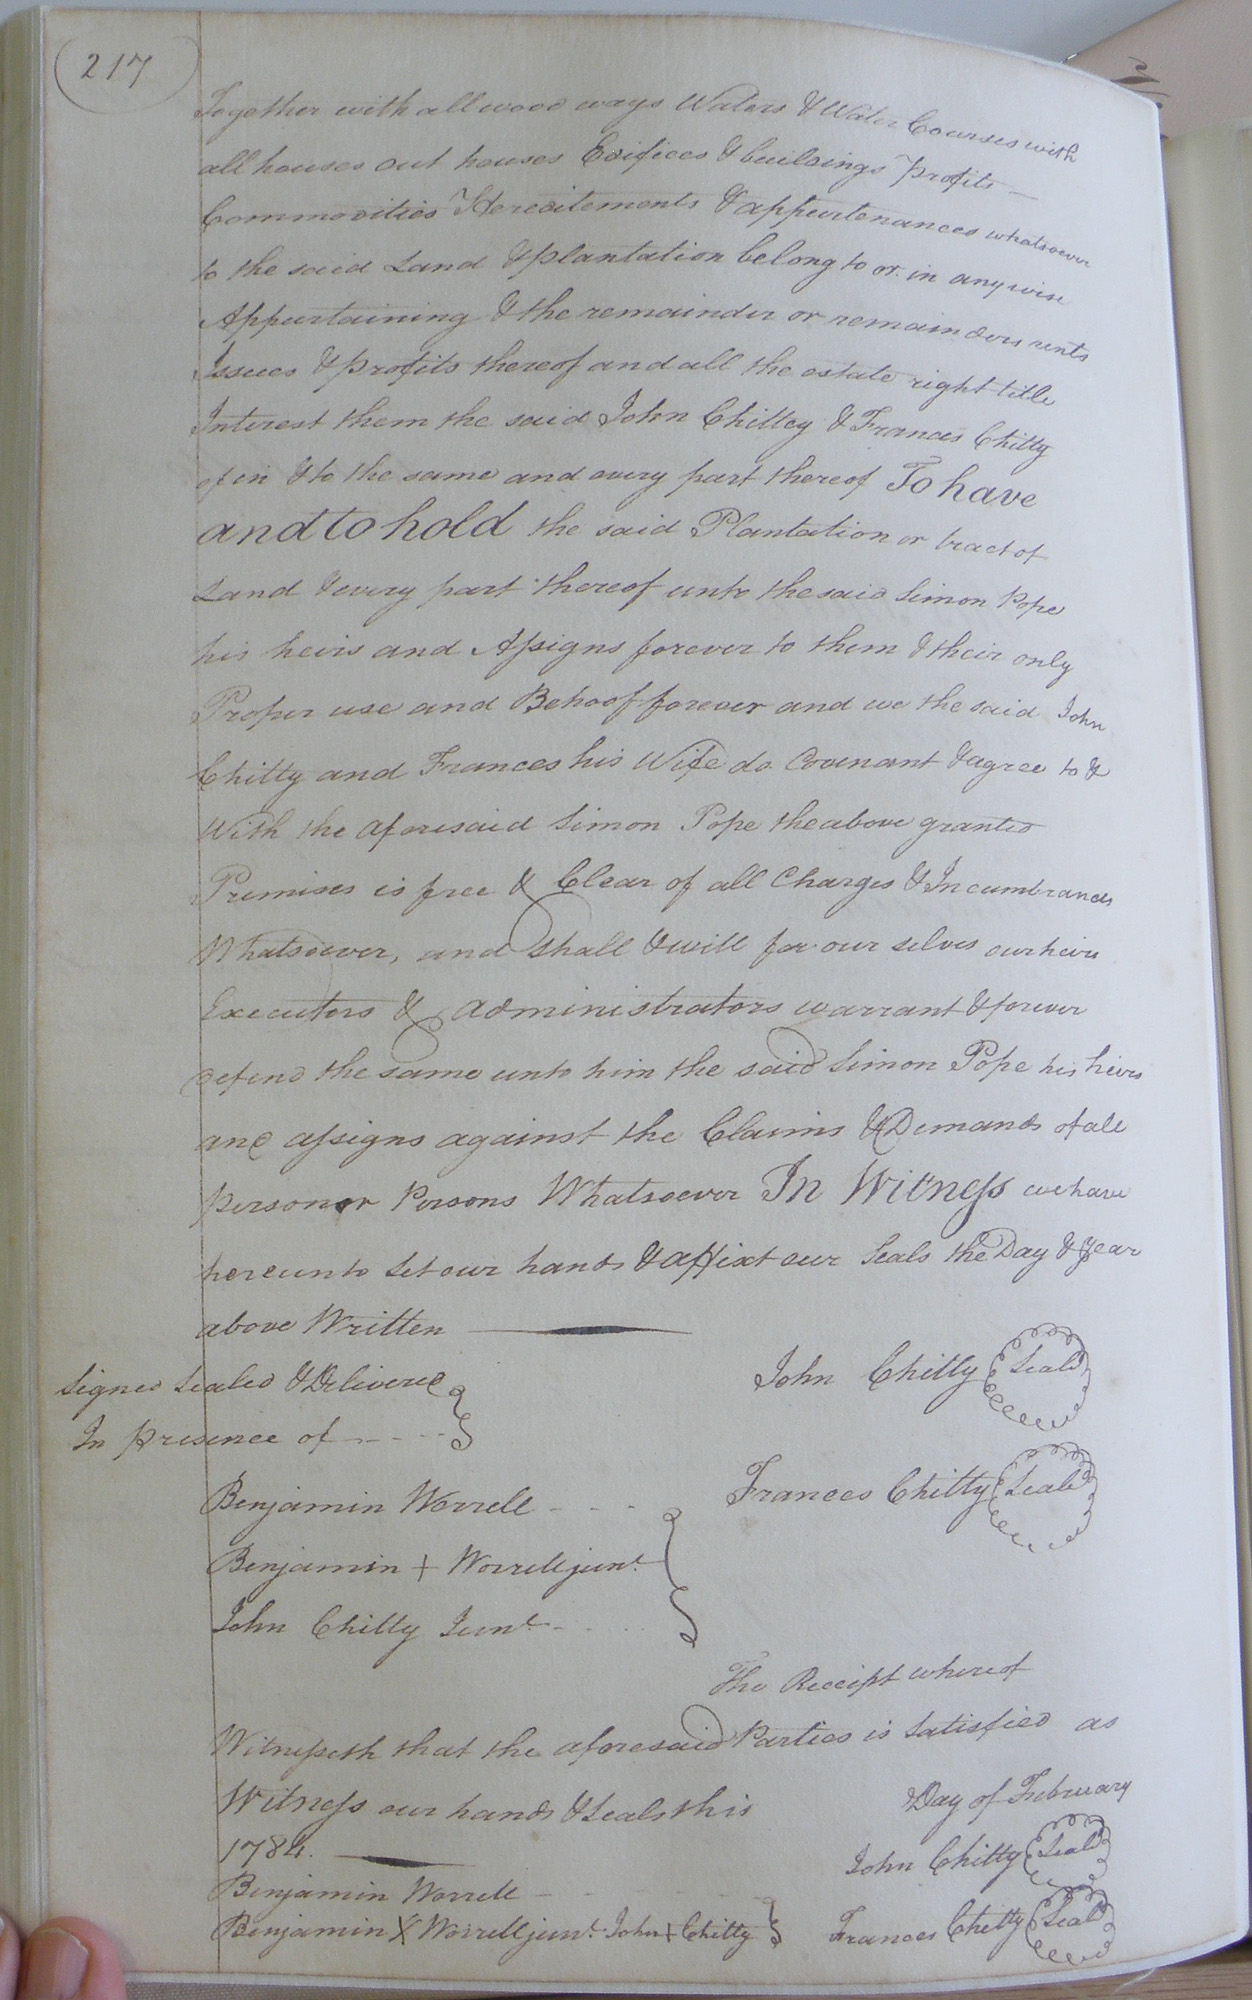 217
Together with all wood ways Waters & Water Courses with
all houses out houses Edifices & buildings Profits
Commodities Hereditements & appurtenances whatsoever
to the said Land & plantation belong to or in any wise
Appurtaining & the remainder or remainders rents
Issues & profits thereof and all the estate right title
Interest them the said John Chittey & Frances Chitty
of in & to the same and every part thereof To have
and to hold the said Plantation or tract of
Land & every part thereof unto the said Simon Pope
his heirs and Assigns forever to them & their only
Proper use and Behoof forever and we the said John
Chitty and Frances his Wife do Covenant & agree to &
With the aforesaid Simon Pope the above granted
Premises is free & Clear of all Charges & Incumbrances
Whatsoever, and shall & will for our selves our heirs
Executors & administrators warrant & forever
defend the same unto him the said Simon Pope his heirs
and assigns against the Claims & Demands of all
person or Persons Whatsoever In Witness we have
hereunto Set our hands & affixt our Seals the Day & Year
above Written
Signed Sealed & Delivered
In presence of
John Chitty Seal
Frances Chitty Seal
Benjamin Worrell
Benjamin + Worrell junr.
John Chitty Junr.
The Receipt whereof
Witnesseth that the aforesaid Parties is Satisfied as
Witness our hands & Seals this Day of February
1784.
John Chitty Seal
Benjamin Worrell
Benjamin X Worrell junr. John + Chitty
Frances Chitty Seal